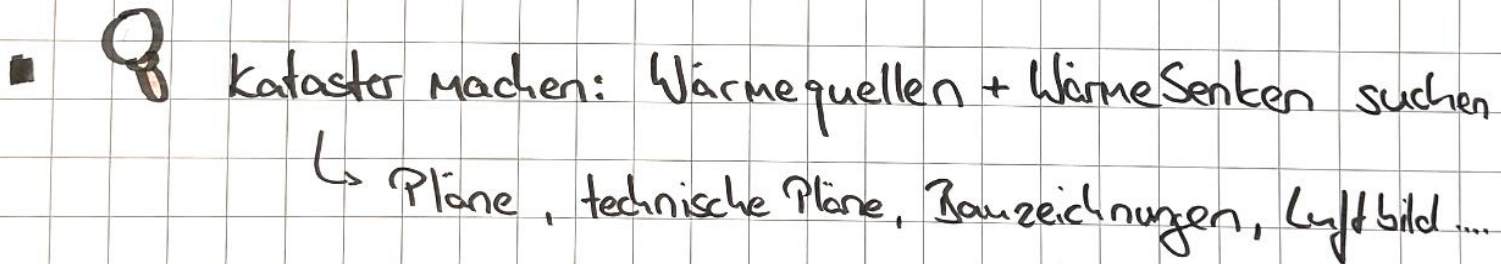 ▪ Kataster machen: Wärmequellen + WärmeSenken suchen
↳ Pläne, technische Pläne, Bauzeichnungen, Luftbild....